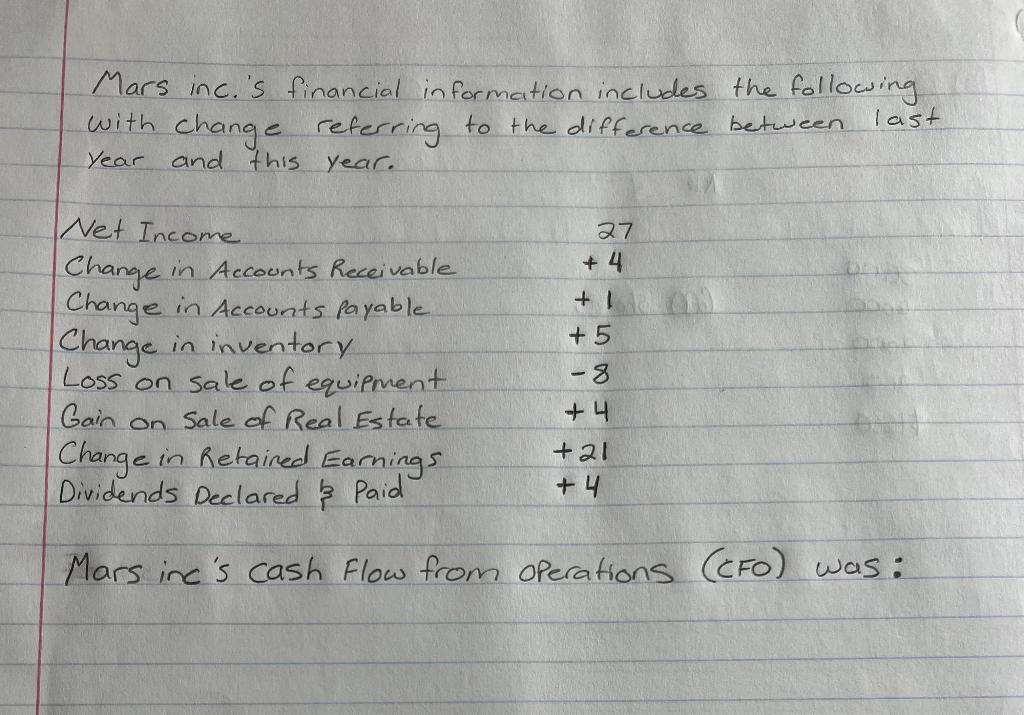 Mars inc.'s financial information includes the following
with change referring to the difference between last
year and this year.
Net Income 27
Change in Accounts Receivable + 4
Change in Accounts Payable + 1
Change in inventory + 5
Loss on sale of equipment - 8
Gain on Sale of Real Estate + 4
Change in Retained Earnings + 21
Dividends Declared & Paid + 4
Mars inc's cash Flow from operations (CFO) was: